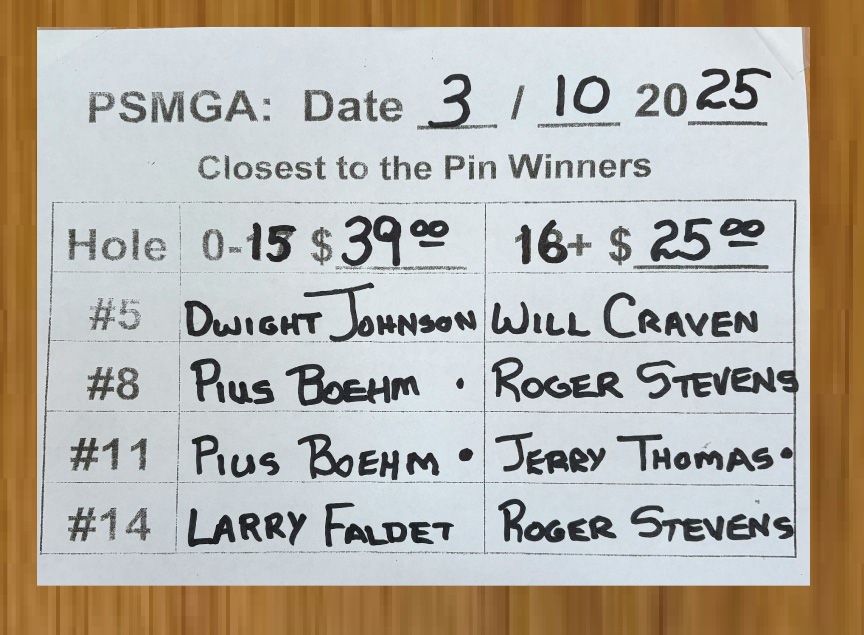 PSMGA: Date 3 / 10 2025
Closest to the Pin Winners
Hole 0-15 $ 39.00 16+ $ 25.00
#5 DWIGHT JOHNSON WILL CRAVEN
#8 PIUS BOEHM • ROGER STEVENS
#11 PIUS BOEHM • JERRY THOMAS •
#14 LARRY FALDET ROGER STEVENS